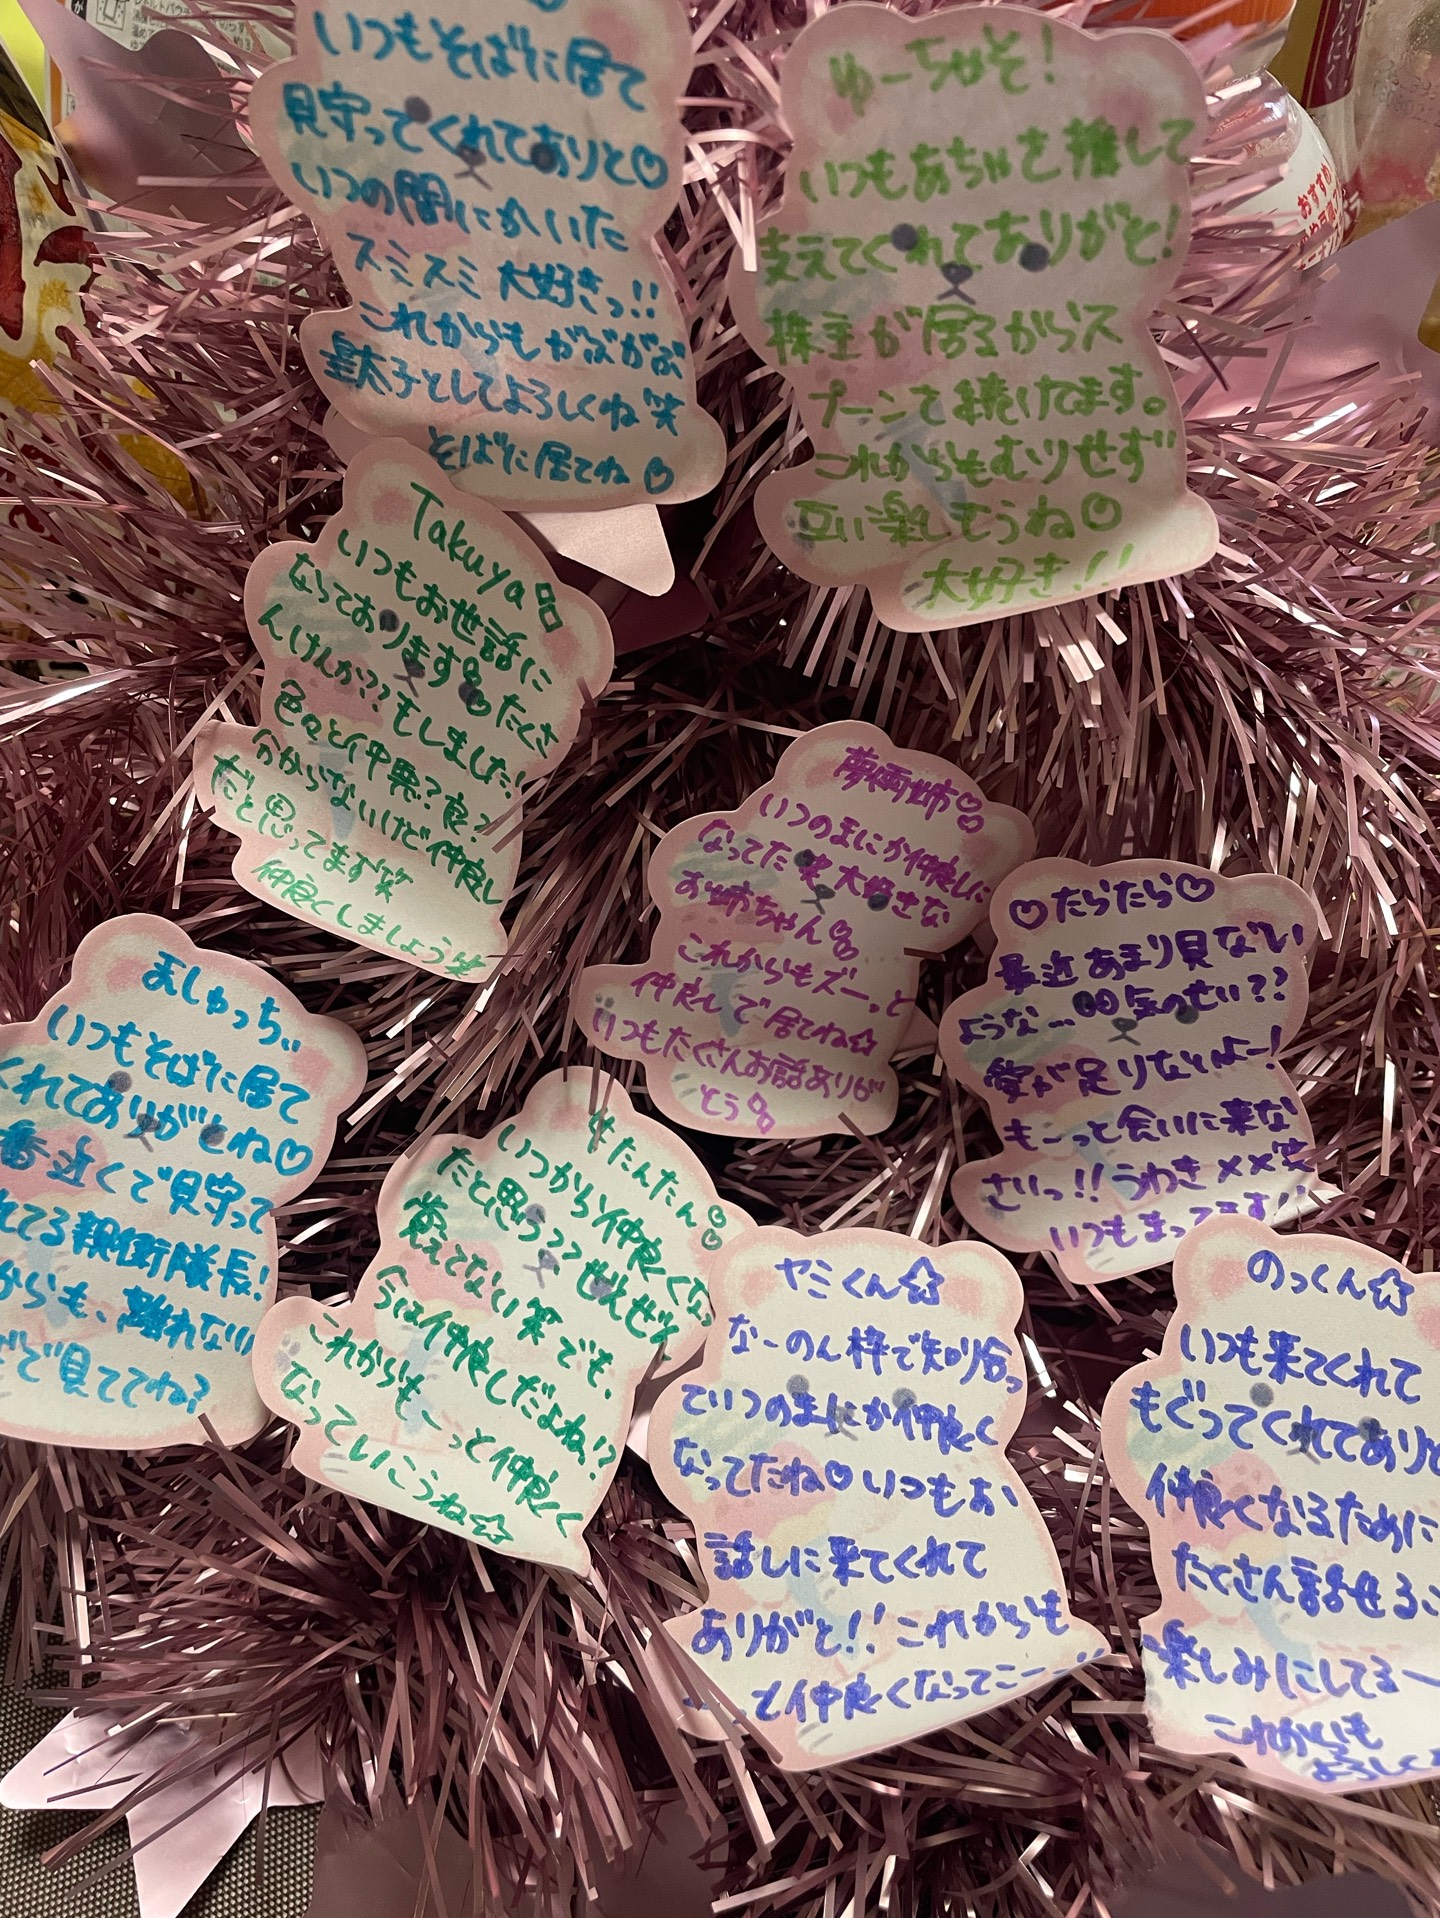 いつもそばに居て
見守ってくれてありと♡
いつの間にかいた
スミスミ大好きっ!!
これからもがぶがぶ
皇太子としてよろしくね笑
そばに居てね♡
ゆーちゃそ!
いつもあちゃを推して
支えてくれてありがと!
株主が居るからス
プーンで続けてます。
これからもむりせず
互い楽しもうね♡
大好き!!
Takuya
いつもお世話に
なっております たくさ
んけんか??もしました!
色々と仲悪?良?
分からないけど仲良し
だと思ってます笑
仲良くしましょう笑
夢姉♡
いつのまにか仲良しに
なってた笑大好きな
お姉ちゃん
これからもズーっと
仲良しで居てね☆
いつもたくさんお話ありが
とう
♡たらたら♡
最近あまり見ない
ような…気のせい??
愛が足りないよー!
もーっと会いに来な
さいっ!!うわき××笑
いつもまってます!!
ましゅっち
いつもそばに居て
くれてありがとね♡
番近くで見守って
れてる親衛隊長!
からも、離れない
で見ててね?
せたんたん
いつから仲良くな
たと思う??ぜんぜん
覚えてない笑でも、
今は仲良しだよね!?
これからもーっと仲良く
なっていこうね☆
ヤミくん☆
なーのん枠で知り合っ
ていつのまにか仲良く
なってたね♡いつもお
話しに来てくれて
ありがと!!これからも
と仲良くなってこー
のっくん☆
いつも来てくれて
もぐってくれてありと
仲良くなるために
たくさん話せる
楽しみにしてるー
これからも
よろしく
おすすめ